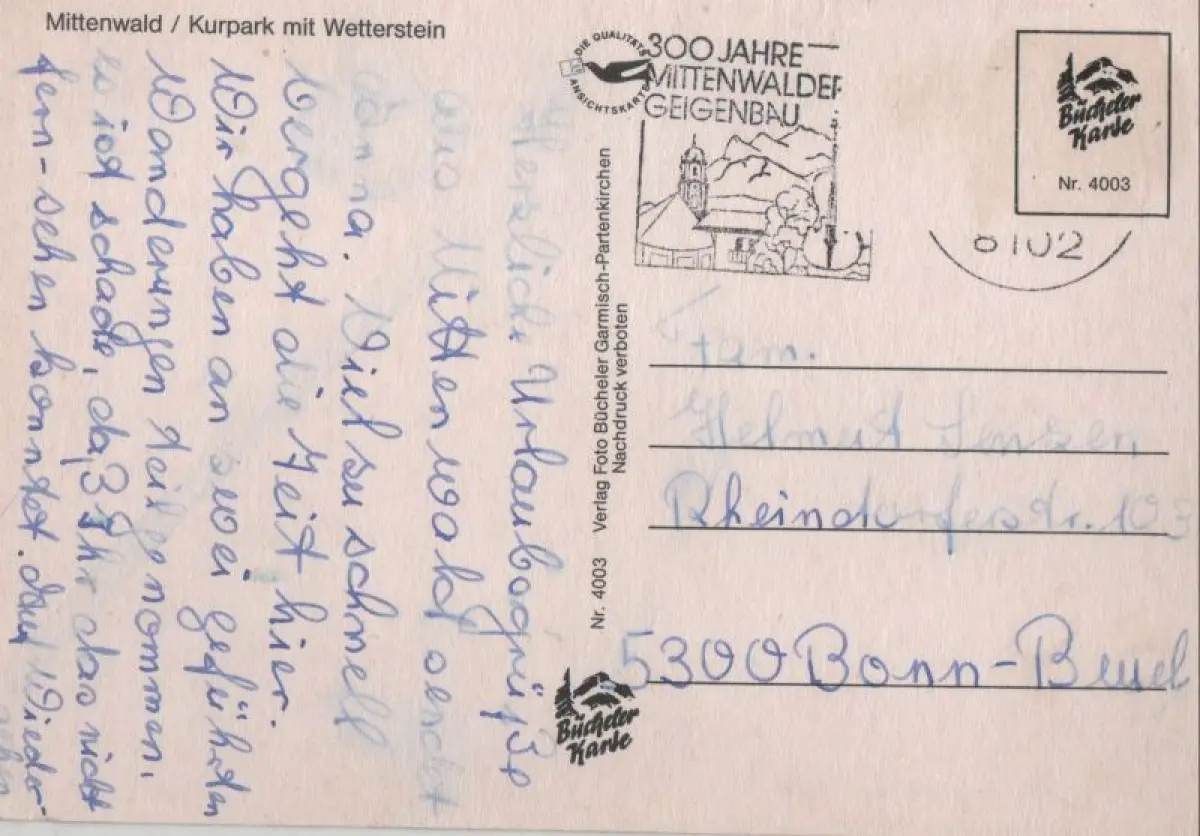 Mittenwald / Kurpark mit Wetterstein
Herzliche Urlaubsgrüße
aus Mittenwald sendet
Anna. Viel zu schnell
vergeht die Zeit hier.
Wir haben an zwei geführten
Wanderungen teilgenommen.
es ist schade, daß Ihr das nicht
fern-sehen konntet. Auf Wieder-
sehen
Nr. 4003 Verlag Foto Bücheler Garmisch-Partenkirchen
Nachdruck verboten
Bücheler
Karte
DIE QUALITÄTS
ANSICHTSKARTE
300 JAHRE
MITTENWALDER
GEIGENBAU
Bücheler
Karte
Nr. 4003
8102
Fam.
Helmut Jensen
Rheindorferstr. 103
5300 Bonn-Beuel